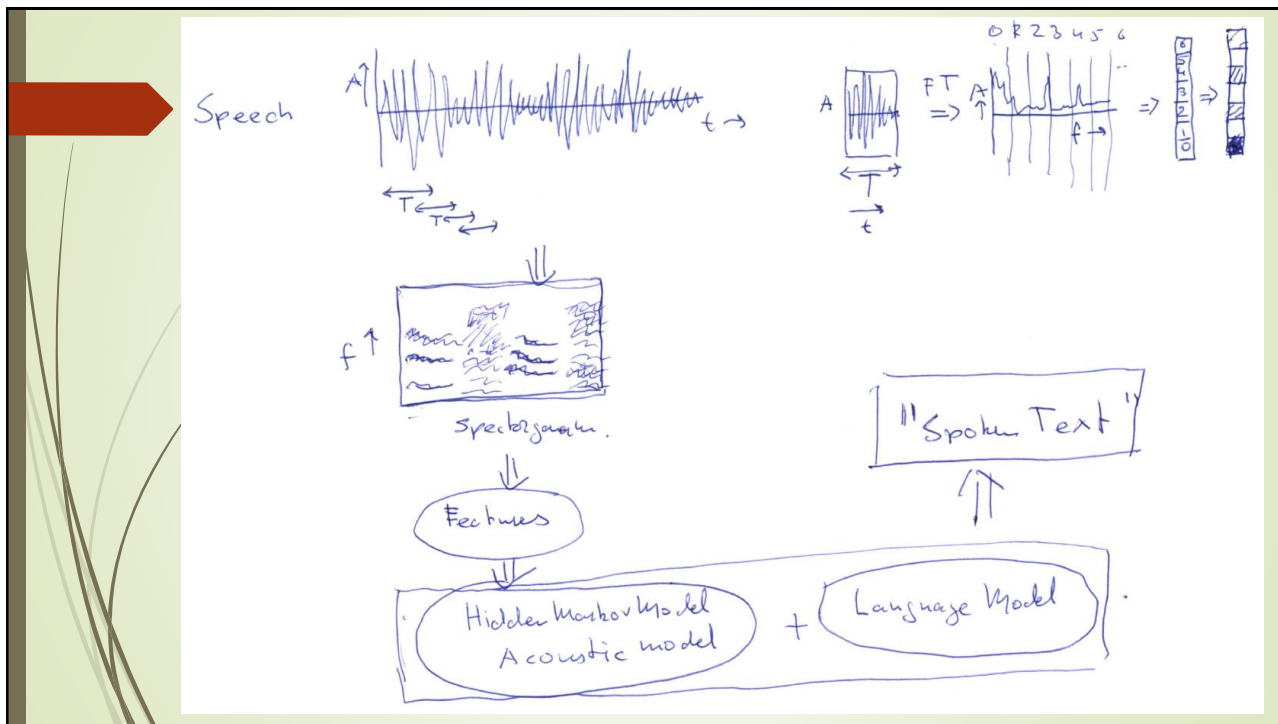 Speech
A↑
t →
T
T
A
T
t
FT
⇒
0 1 2 3 4 5 6
A
↑
f →
⇒
6
5
4
3
2
1
0
⇒
f ↑
Spectrogram.
Features
Hidden Markov Model
Acoustic model
+
Language Model
"Spoken Text"